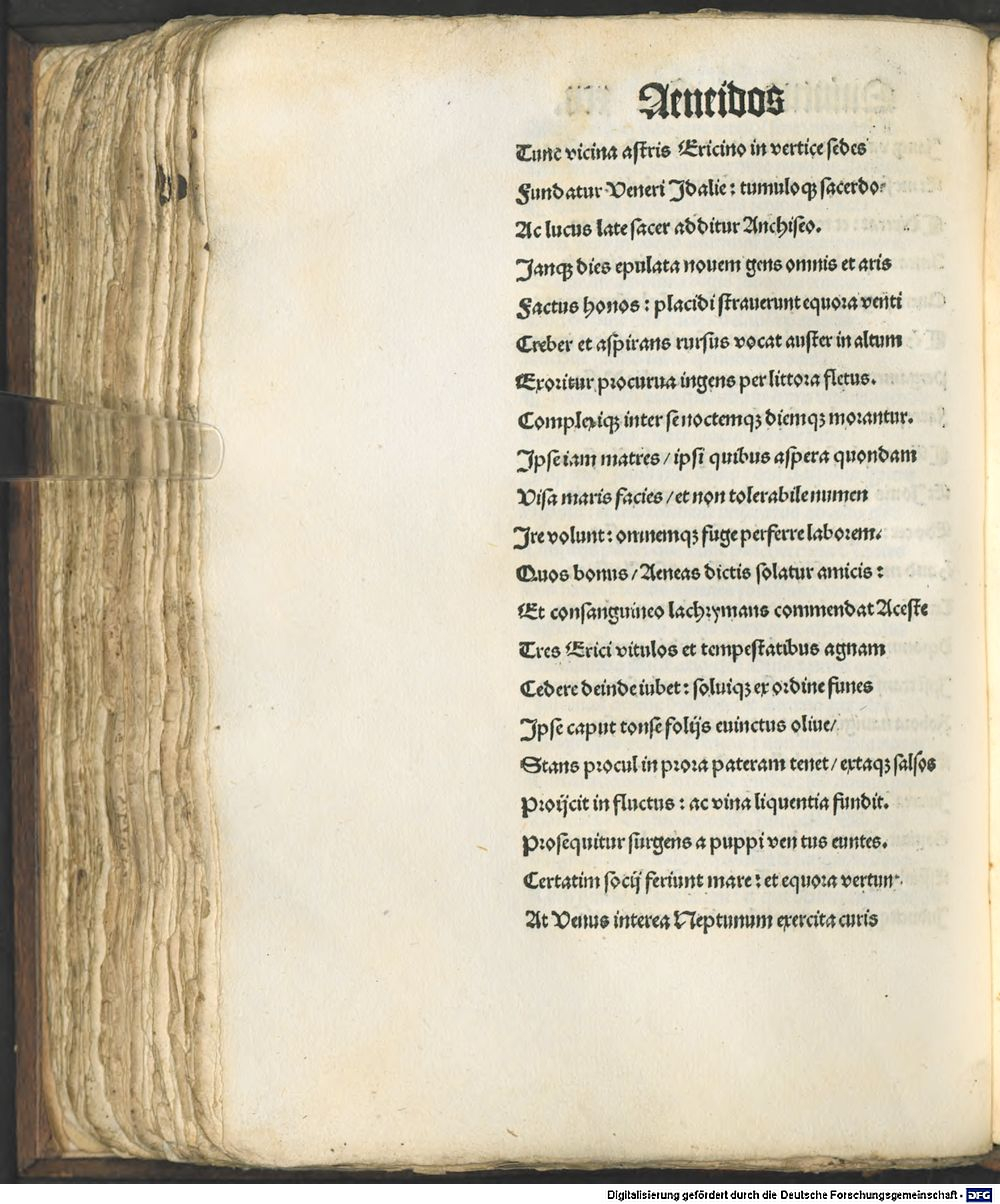 Aeneidos
Tunc vicina astris Ericino in vertice sedes
Fundatur Veneri Idalie : tumuloqꝫ sacerdo
Ac lucus late sacer additur Anchiseo.
Janqꝫ dies epulata nouem gens omnis et aris
Factus honos : placidi strauerunt equora venti
Creber et aspirans rursus vocat auster in altum
Exoritur procurua ingens per littora fletus.
Complexiqꝫ inter se noctemqꝫ diemqꝫ morantur.
Ipse iam matres / ipsi quibus aspera quondam
Visa maris facies / et non tolerabile numen
Ire volunt : omnemqꝫ fuge perferre laborem.
Quos bonus / Aeneas dictis solatur amicis :
Et consanguineo lachrymans commendat Aceste
Tres Erici vitulos et tempestatibus agnam
Cedere deinde iubet : soluiqꝫ ex ordine funes
Ipse caput tonse folijs euinctus oliue /
Stans procul in prora pateram tenet / extaqꝫ salsos
Proijcit in fluctus : ac vina liquentia fundit.
Prosequitur surgens a puppi ven tus euntes.
Certatim socij feriunt mare : et equora vertun
At Venus interea Neptunum exercita curis
Digitalisierung gefördert durch die Deutsche Forschungsgemeinschaft - DFG